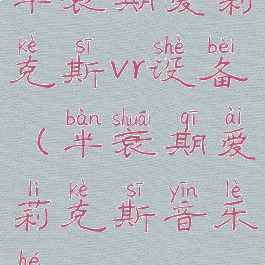 半衰期爱莉
kè sī shè bèi
克斯vr设备
bàn shuāi qī ài
(半衰期爱
lì kè sī yīn lè
莉克斯音乐
hé